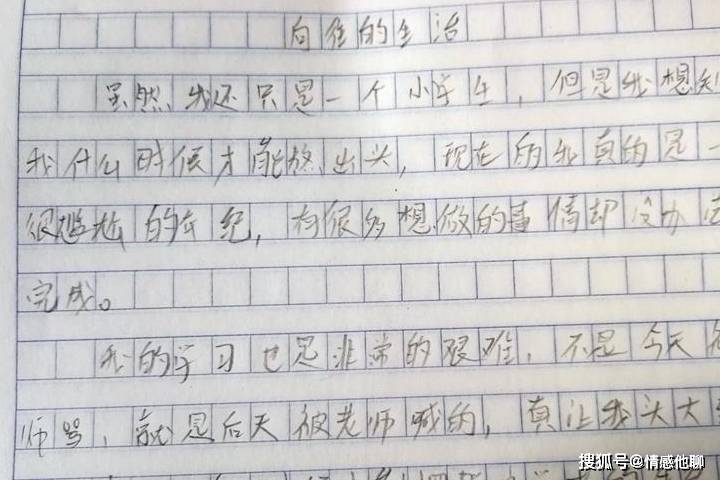 向往的生活
虽然我还只是一个小学生，但是我想知
我什么时候才能熬出头，现在的我真的是一
很尴尬的年纪，有很多想做的事情却没办法
完成。
我的学习也是非常的艰难，不是今天被
师骂，就是后天被老师喊的，真让我头大
搜狐号@情感他聊